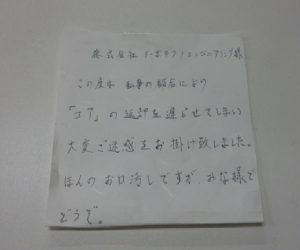 株式会社 エンジニアリング様
この度は 私事の都合により
「エア」の返却を遅らせてしまい
大変ご迷惑をお掛け致しました。
ほんのお口汚しですが、みな様で
どうぞ。